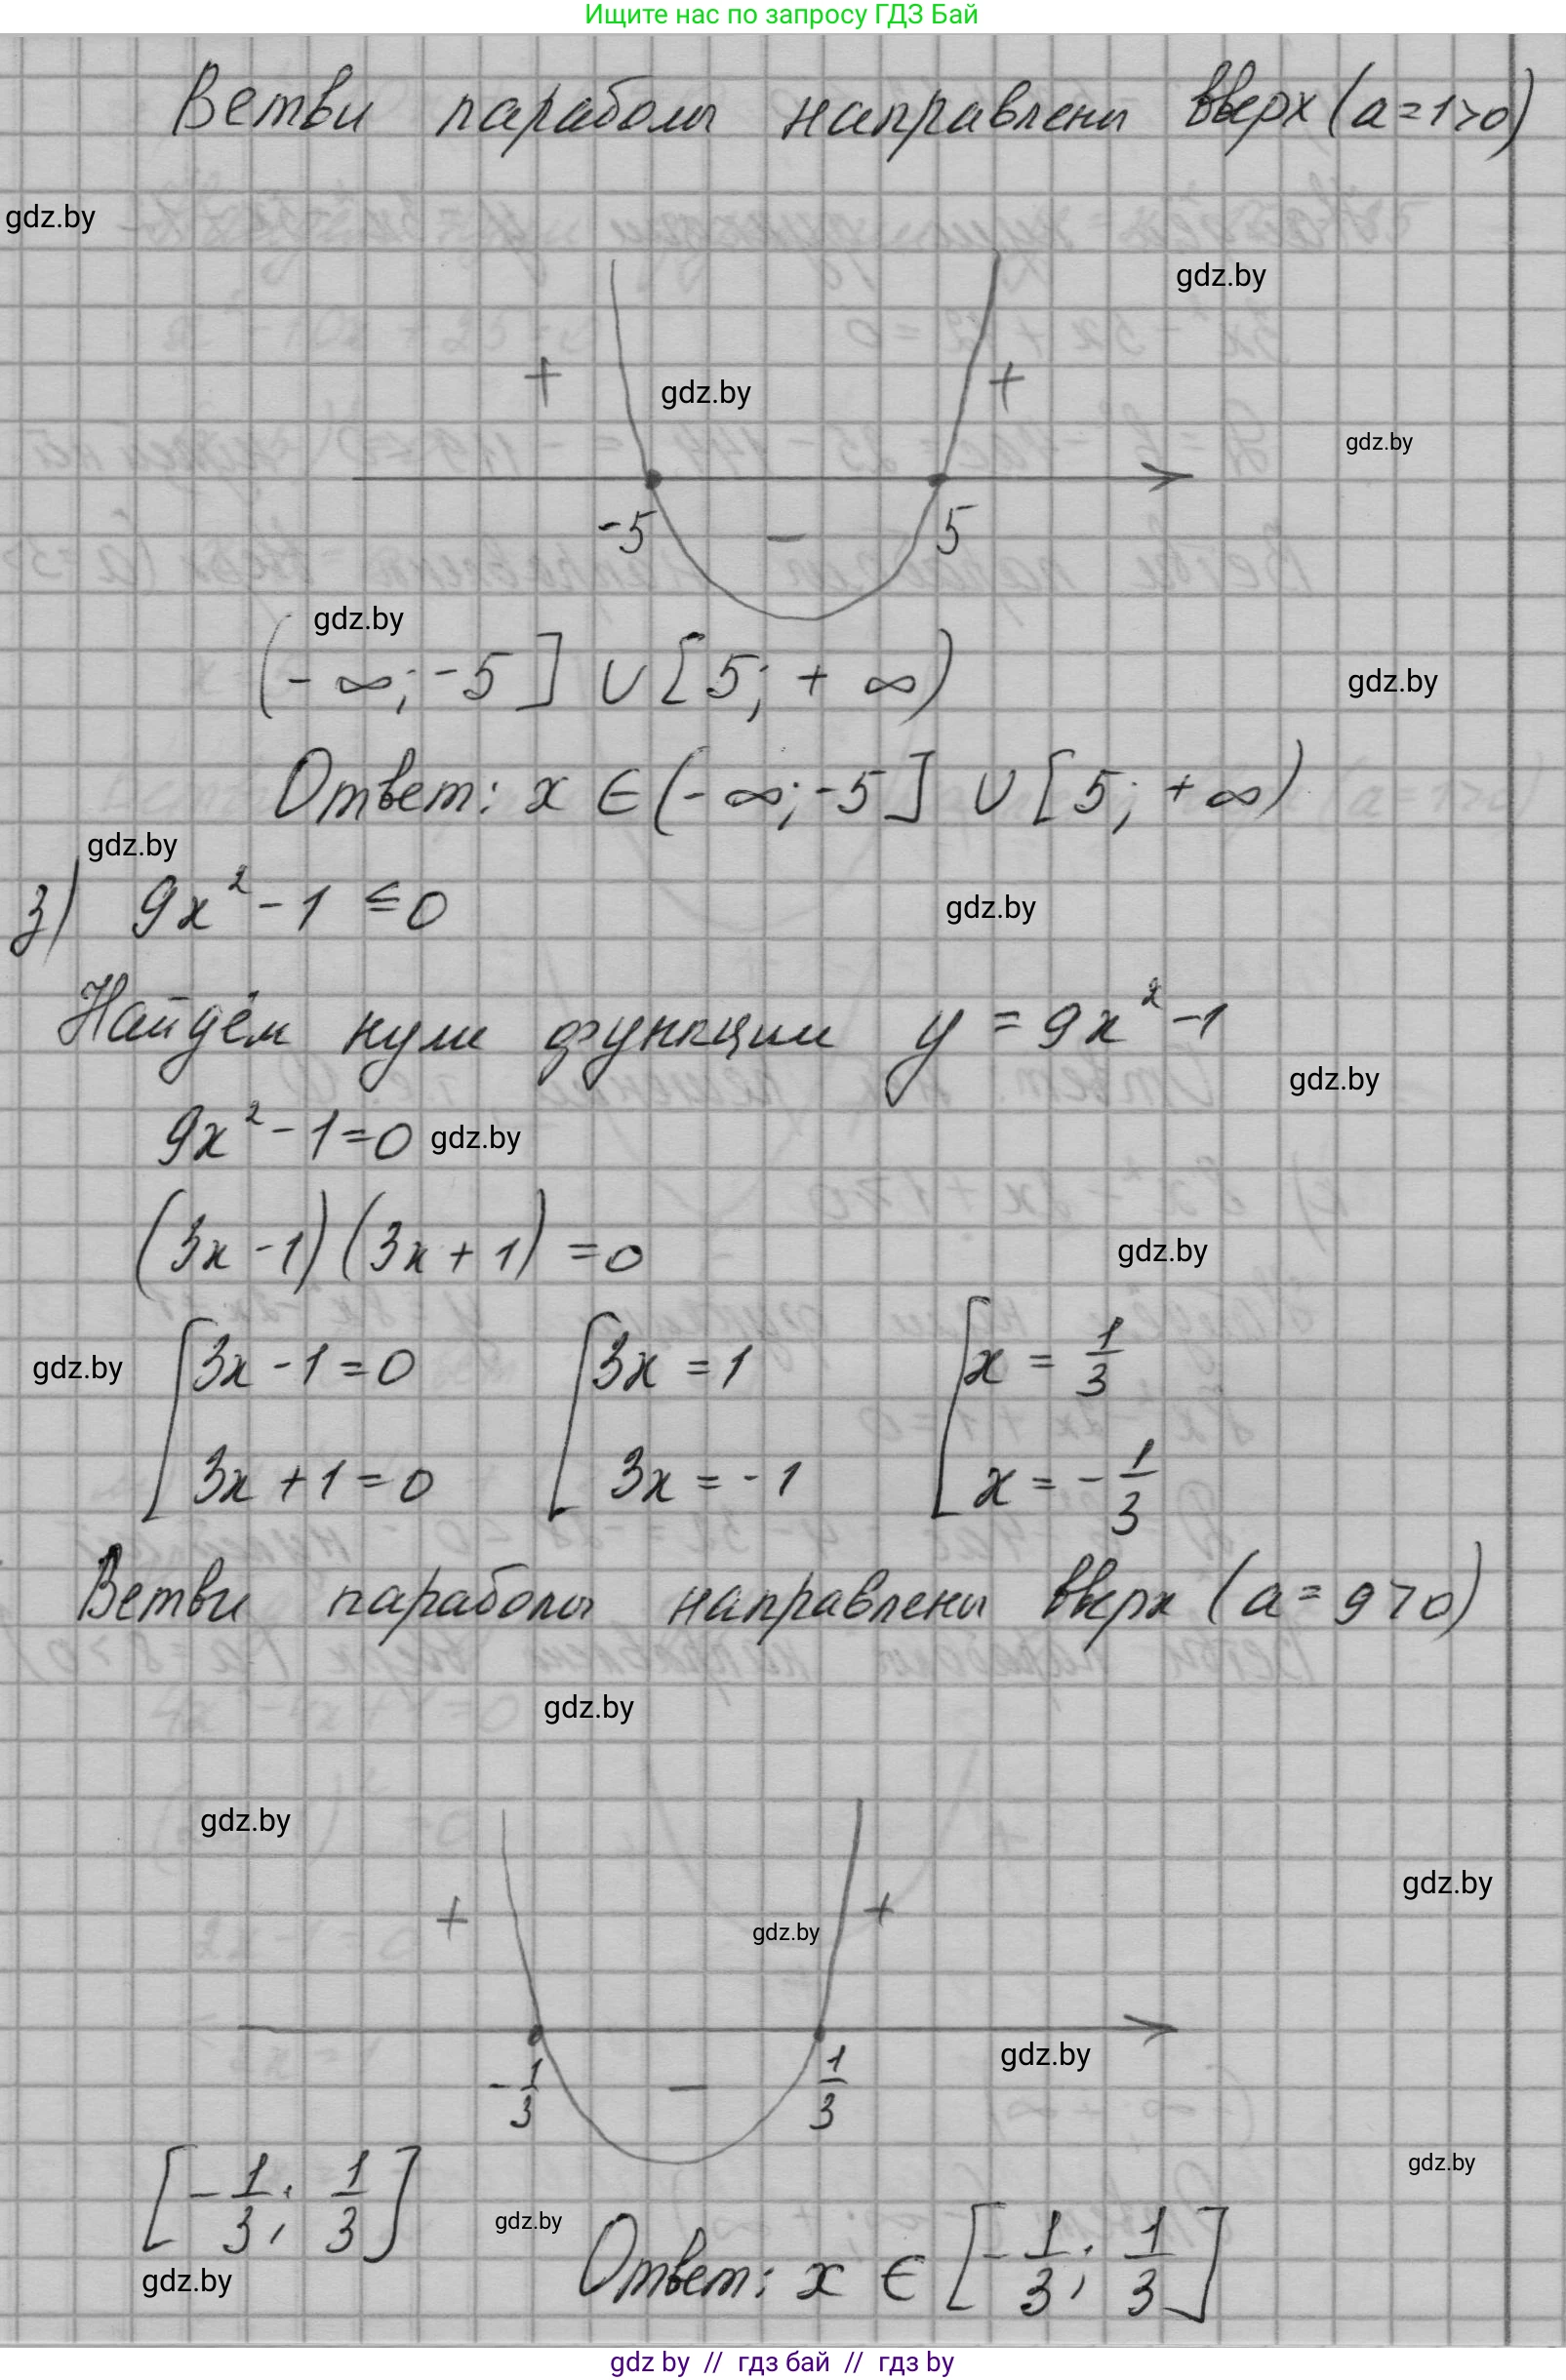 Ищите нас по запросу ГДЗ Бай
Ветви параболы направлены вверх (a=1>0)
gdz.by
gdz.by
+ gdz.by +
gdz.by
-5 - 5
gdz.by
(-∞; -5] ∪ [5; +∞)
gdz.by
Ответ: x ∈ (-∞; -5] ∪ [5; +∞)
gdz.by
з) 9x² - 1 ≤ 0
gdz.by
Найдём нули функции y = 9x² - 1
gdz.by
9x² - 1 = 0 gdz.by
(3x - 1)(3x + 1) = 0
gdz.by
gdz.by [3x - 1 = 0 [3x = 1 [x = 1/3
3x + 1 = 0 3x = -1 x = -1/3
Ветви параболы направлены вверх (a = 9 > 0)
gdz.by
gdz.by
gdz.by
+ gdz.by +
gdz.by
-1/3 - 1/3
gdz.by
[-1/3; 1/3]
gdz.by
Ответ: x ∈ [-1/3; 1/3]
gdz.by
gdz by // гдз бай // гдз by